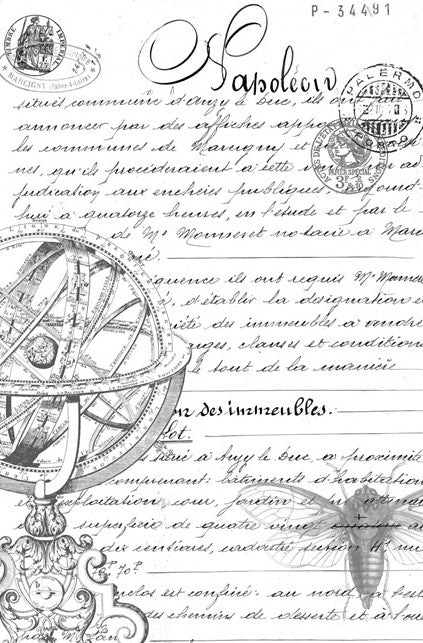 P-34491
TIMBRE IMPERIAL
MARCIGNY
Napoléon
PALERMO
PORTO
situés commune d'Anzy le Duc, ils ont fait
annoncer par des affiches appo
les communes de Marcigny et
nes, qu'ils procéderaient à cette ad
judication aux enchères publiques
PAPIER SPÉCIAL
3F
hui à quatorze heures, en l'étude et par le
de Me notaire à Marc
quence ils ont requis Me
, d'établir la désignation e
iété des immeubles à vendre
arges, clauses et condition
le tout de la manière
on des immeubles.
lot.
situé à Anzy le Duc, à proximité
comprenant: bâtiments d'habitation
et exploitation, cour, jardin et
superficie de quatre vingt
dix centiares, cadastré section H. nu
70P
enclos est confiné: au nord, à l'est
des chemins de desserte et à l'ou